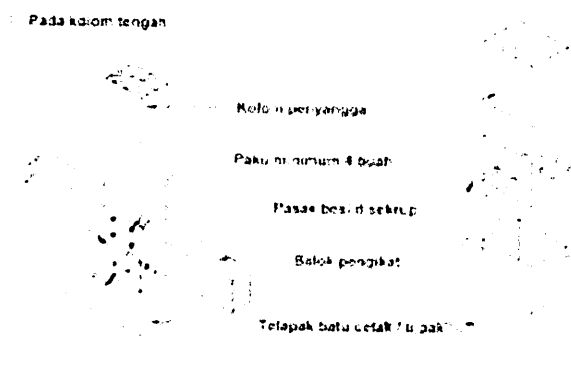 Pada kolom tengah
Kolom penyangga
Paku minimum 4 buah
Pasak besi di sekrup
Balok pengikat
Telapak batu cetak /